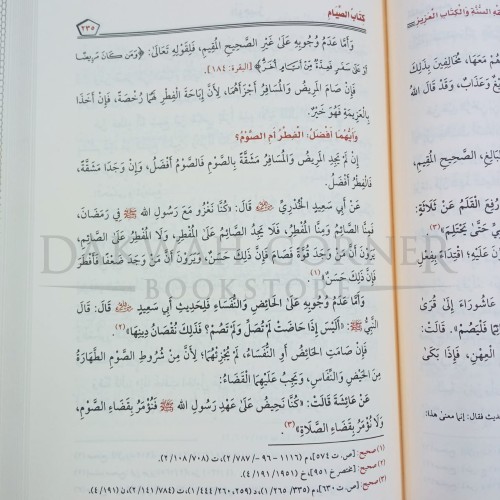 كتاب الصيام
٢٣٥
وَأَمَّا عَدَمُ وُجُوبِهِ عَلَىٰ غَيْرِ الصَّحِيحِ الْمُقِيمِ، فَلِقَوْلِهِ تَعَالَىٰ: ﴿وَمَن كَانَ مَرِيضًا
أَوْ عَلَىٰ سَفَرٍ فَعِدَّةٌ مِّنْ أَيَّامٍ أُخَرَ﴾ [البقرة: ١٨٤].
فَإِنْ صَامَ الْمَرِيضُ وَالْمُسَافِرُ أَجْزَأَهُمَا، لِأَنَّ إِبَاحَةَ الْفِطْرِ لَهُمَا رُخْصَةٌ، فَإِنْ أَخَذَا
بِالْعَزِيمَةِ فَهُوَ خَيْرٌ.
وَأَيُّهُمَا أَفْضَلُ: الْفِطْرُ أَمِ الصَّوْمُ؟
إِنْ لَمْ يَجِدِ الْمَرِيضُ وَالْمُسَافِرُ مَشَقَّةً بِالصَّوْمِ فَالصَّوْمُ أَفْضَلُ، وَإِنْ وَجَدَا مَشَقَّةً،
فَالْفِطْرُ أَفْضَلُ.
عَنْ أَبِي سَعِيدٍ الْخُدْرِيِّ ﵁ قَالَ: «كُنَّا نَغْزُو مَعَ رَسُولِ اللهِ ﷺ فِي رَمَضَانَ،
فَمِنَّا الصَّائِمُ وَمِنَّا الْمُفْطِرُ، فَلَا يَجِدُ الصَّائِمُ عَلَىٰ الْمُفْطِرِ، وَلَا الْمُفْطِرُ عَلَىٰ الصَّائِمِ،
يَرَوْنَ أَنَّ مَنْ وَجَدَ قُوَّةً فَصَامَ فَإِنَّ ذَلِكَ حَسَنٌ، وَيَرَوْنَ أَنَّ مَنْ وَجَدَ ضَعْفًا فَأَفْطَرَ
فَإِنَّ ذَلِكَ حَسَنٌ»(١).
وَأَمَّا عَدَمُ وُجُوبِهِ عَلَىٰ الْحَائِضِ وَالنُّفَسَاءِ فَلِحَدِيثِ أَبِي سَعِيدٍ ﵁ قَالَ: قَالَ
النَّبِيُّ ﷺ: «أَلَيْسَ إِذَا حَاضَتْ لَمْ تُصَلِّ وَلَمْ تَصُمْ؟ فَذَلِكَ نُقْصَانُ دِينِهَا»(٢).
فَإِنْ صَامَتِ الْحَائِضُ أَوِ النُّفَسَاءُ، لَمْ يُجْزِئْهُمَا؛ لِأَنَّ مِنْ شُرُوطِ الصَّوْمِ الطَّهَارَةُ
مِنَ الْحَيْضِ وَالنِّفَاسِ، وَيَجِبُ عَلَيْهِمَا الْقَضَاءُ:
عَنْ عَائِشَةَ قَالَتْ: «كُنَّا نَحِيضُ عَلَىٰ عَهْدِ رَسُولِ اللهِ ﷺ فَنُؤْمَرُ بِقَضَاءِ الصَّوْمِ،
وَلَا نُؤْمَرُ بِقَضَاءِ الصَّلَاةِ»(٣).
(١) صحيح: [ص. ت ٥٧٤]، م (١١١٦ - ٩٦ - /٧٨٧/ ٢)، ت (٧٠٨/ ١٠٨/ ٢).
(٢) صحيح: [مختصر خ ٩٥١]، خ (١٩٥١/ ١٩١/ ٤).
(٣) صحيح: [ص. ت ٦٣٠]، م (٣٣٥/ ٢٦٥/ ١)، ت (٧٨٤/ ١٤١/ ٢)، د (٢٥٩،٢٦٠/ ٤٤٤/ ١)، ن (١٩١/ ٤).
قه السنة والكتاب العزيز
هُمْ مَعَهَا، مُخَالِفِينَ بِذَلِكَ
وَعَذَابٌ، وَقَدْ قَالَ اللهُ
بَالِغِ، الصَّحِيحِ الْمُقِيمِ،
رُفِعَ الْقَلَمُ عَنْ ثَلَاثَةٍ:
يِّ حَتَّىٰ يَحْتَلِمَ»(٣)
نَ عَلَيْهِ؛ اقْتِدَاءً بِفِعْلِ
عَاشُورَاءَ إِلَىٰ قُرَىٰ
مًا فَلْيَصُمْ». قَالَتْ:
الْعِهْنِ، فَإِذَا بَكَىٰ
ديث فقال: إنما معنى هذا:
DAKWAH CORNER
BOOKSTORE